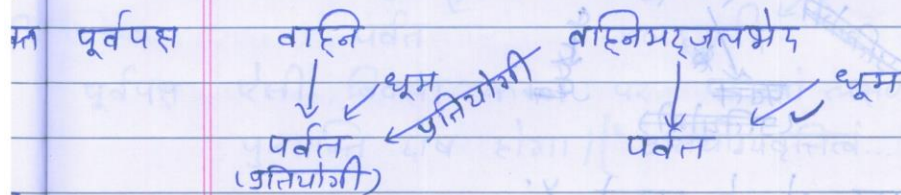 पूर्वपक्ष वाह्नि वाह्निमद्जलभेद
धूम प्रतियोगी धूम
पर्वत पर्वत
(प्रतियोगी)